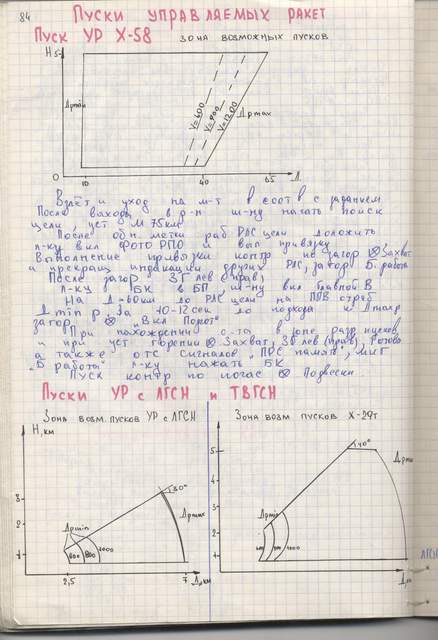 84
Пуски управляемых ракет
Пуск УР Х-58 зона возможных пусков
H
5
Дрmin
V=600
V=900
V=1200
Дрmax
0
10
40
65
Д
Взлёт и уход на м-т в соотв с заданием
После выхода в р-н ш-ну начать поиск
цели, уст М 75км
После обн метки раб РЛС цели доложить
л-ку вкл фото РПО и вып привязку
Выполнение привязки контр по загор ⊗ Захват
и прекращ индикации других РЛС, загор Б. работа
После загор ЗГ лев (прав)
л-ку в БК в БП ш-ну вкл Главной В
На Д=60км до РЛС цели на ППВ
Д min р. За 10-12 сек до подхода к Дmaxр
загор. ⊗ "Вкл Полёт"
При похождении с-та в зоне разр пусков
и при уст горении ⊗ Захват, ЗГ лев (прав), Готов
а также отс сигналов "ПРС памят", миг
"Б работы" л-ку нажать БК
Пуск контр по погас ⊗ Подвески
Пуски УР с ЛГСН и ТВГСН
Зона возм. пусков УР с ЛГСН
Зона возм пусков Х-29т
H, км
3
2
1
Дрmin
600
800
1000
30°
Дрmax
2,5
7
Др км
5
4
3
2
1
Дрmin
1000
40°
Дрm